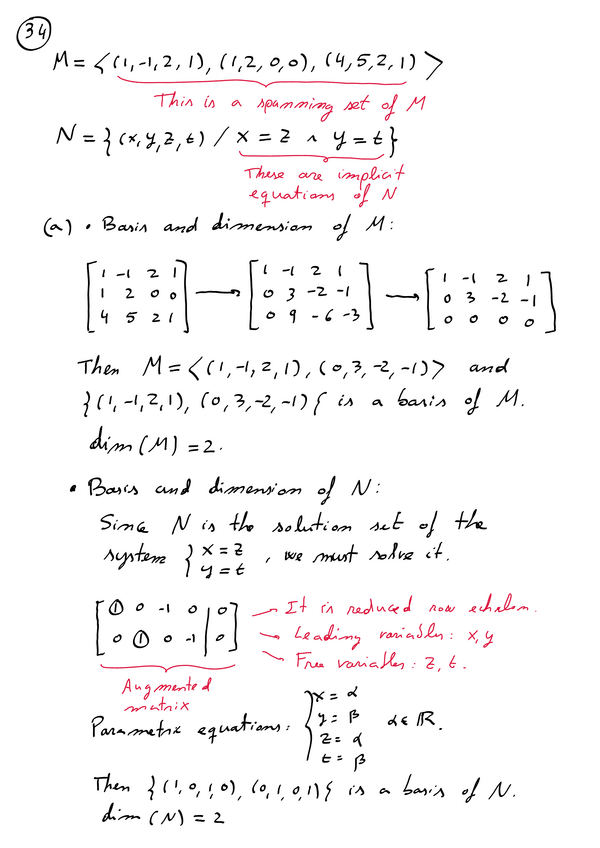 34
M = <(1,-1,2,1), (1,2,0,0), (4,5,2,1)>
This is a spanning set of M
N = {(x,y,z,t) / x = z ∧ y = t}
These are implicit
equations of N
(a) • Basis and dimension of M:
[1 -1 2 1; 1 2 0 0; 4 5 2 1] → [1 -1 2 1; 0 3 -2 -1; 0 9 -6 -3] → [1 -1 2 1; 0 3 -2 -1; 0 0 0 0]
Then M = <(1,-1,2,1), (0,3,-2,-1)> and
{(1,-1,2,1), (0,3,-2,-1)} is a basis of M.
dim(M) = 2.
• Basis and dimension of N:
Since N is the solution set of the
system { x = z, y = t , we must solve it.
[1 0 -1 0 | 0; 0 1 0 -1 | 0]
It is reduced row echelon.
Leading variables: x, y
Free variables: z, t.
Augmented
matrix
Parametric equations: { x = α, y = β, z = α, t = β α ∈ ℝ.
Then {(1,0,1,0), (0,1,0,1)} is a basis of N.
dim(N) = 2